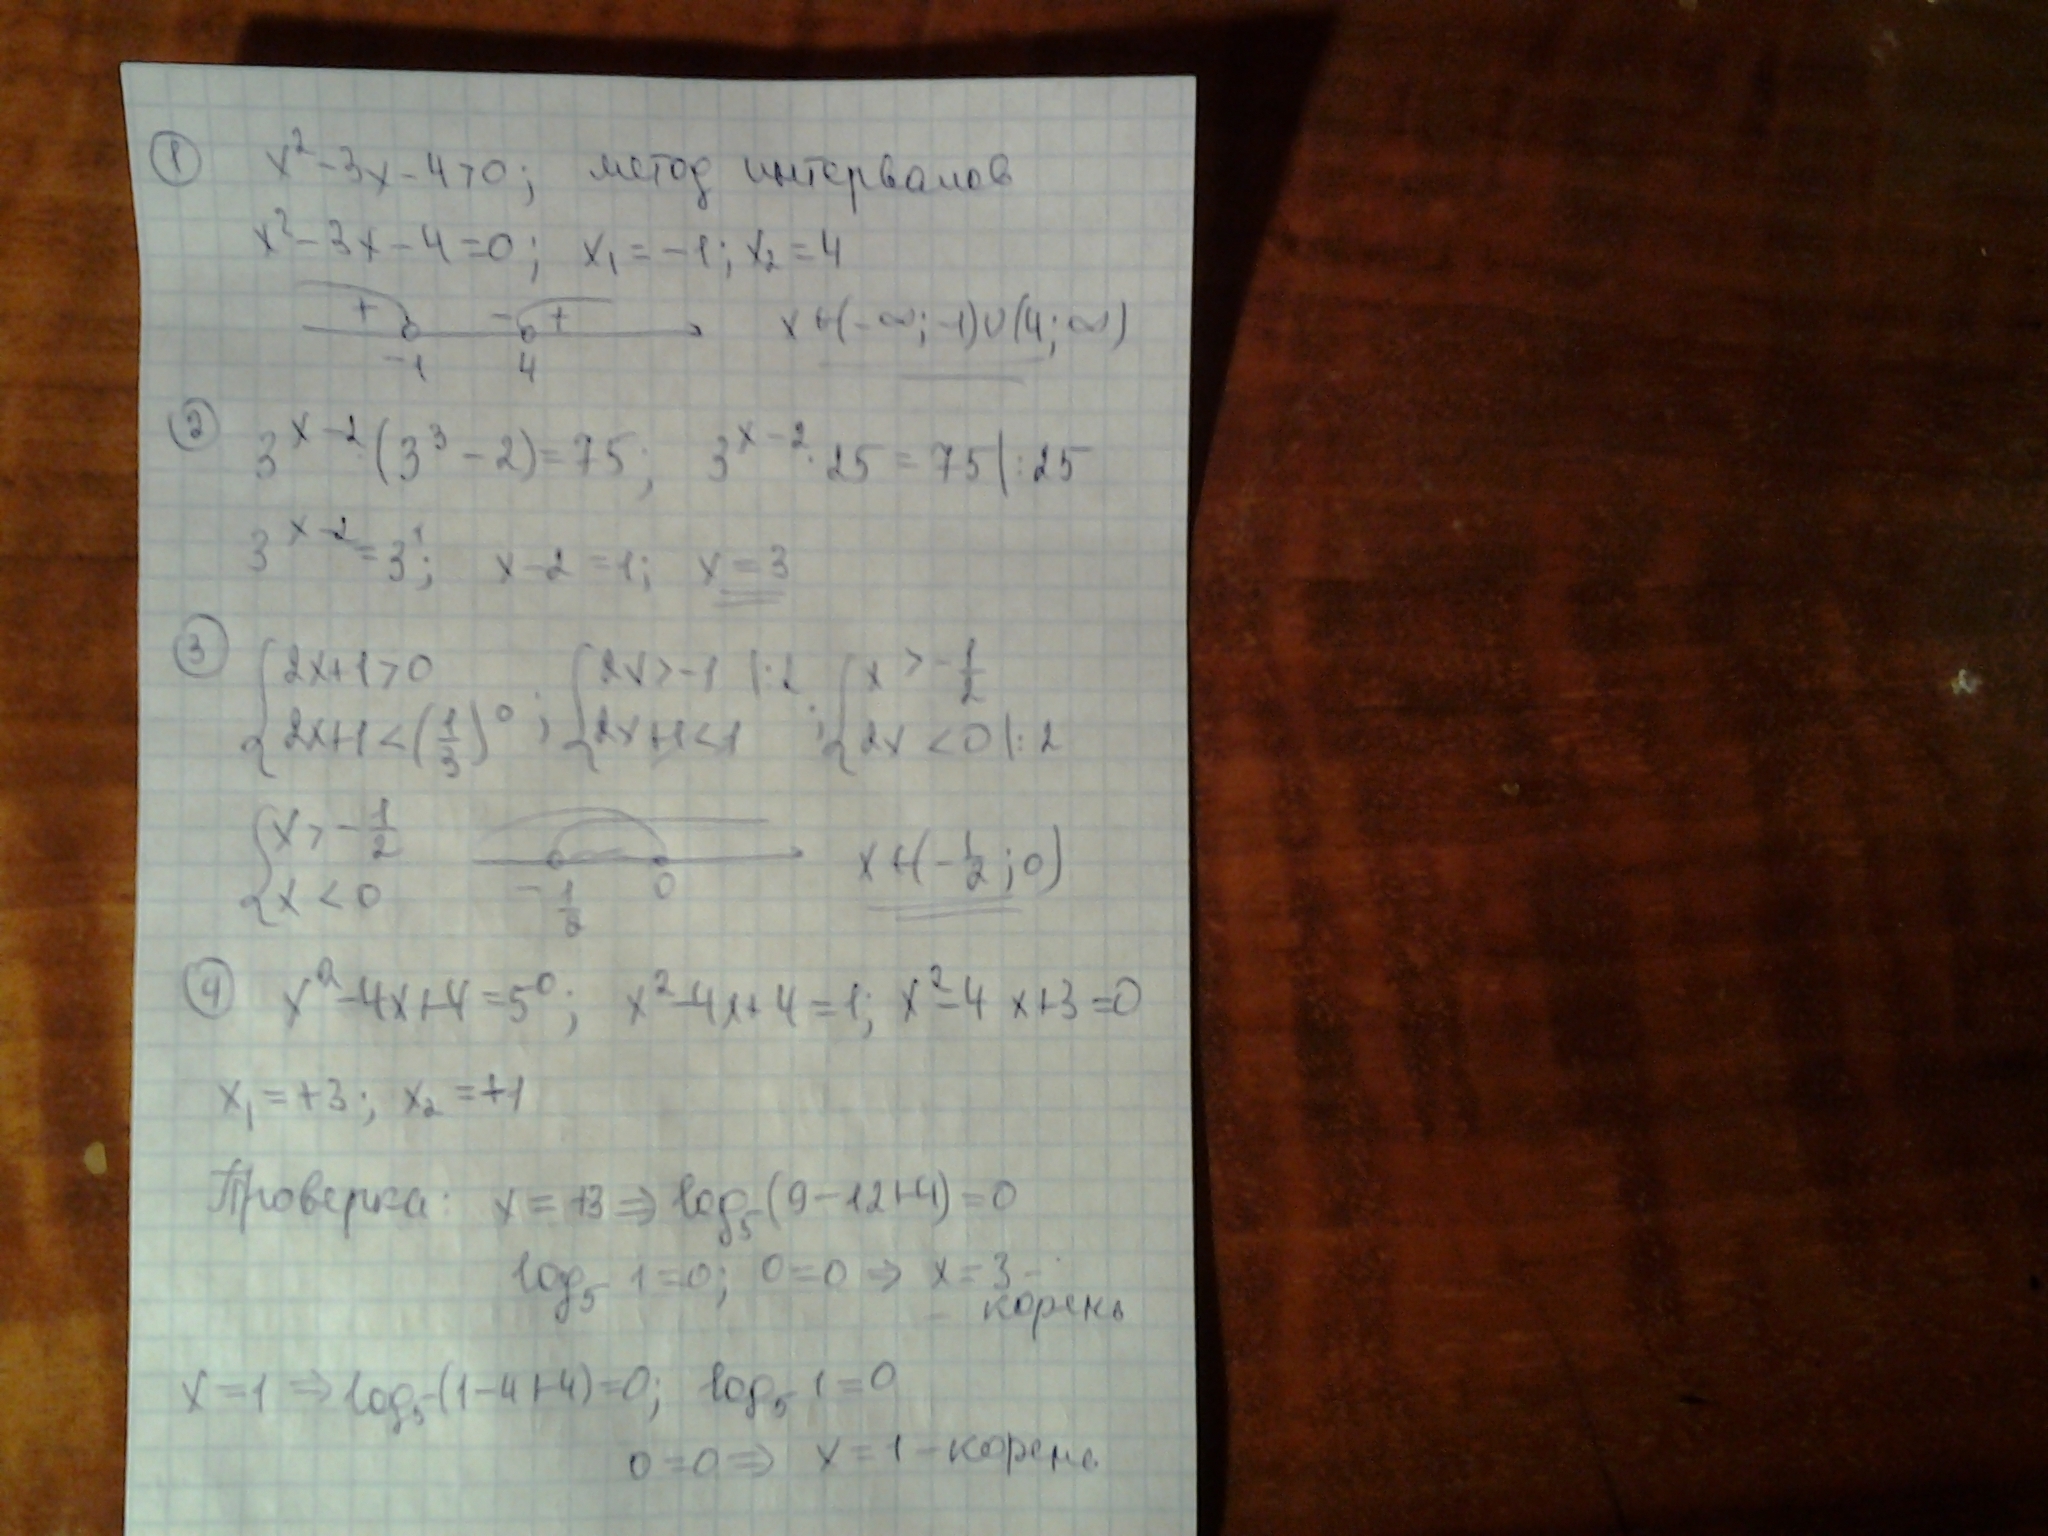 ① x² - 3x - 4 > 0; метод интервалов
x² - 3x - 4 = 0; x₁ = -1; x₂ = 4
+ - + x ∈ (-∞; -1) ∪ (4; ∞)
-1 4
② 3^(x-2) · (3³ - 2) = 75; 3^(x-2) · 25 = 75 |: 25
3^(x-2) = 3¹; x - 2 = 1; x = 3
③ { 2x+1 > 0 ; { 2x > -1 |: 2 ; { x > -1/2
{ 2x+1 < (1/3)⁰ { 2x+1 < 1 { 2x < 0 |: 2
{ x > -1/2 x ∈ (-1/2; 0)
{ x < 0 -1/2 0
④ x² - 4x + 4 = 5⁰; x² - 4x + 4 = 1; x² - 4x + 3 = 0
x₁ = +3; x₂ = +1
Проверка: x = +3 ⇒ log₅(9 - 12 + 4) = 0
log₅ 1 = 0; 0 = 0 ⇒ x = 3 -
- корень
x = 1 ⇒ log₅(1 - 4 + 4) = 0; log₅ 1 = 0
0 = 0 ⇒ x = 1 - корень